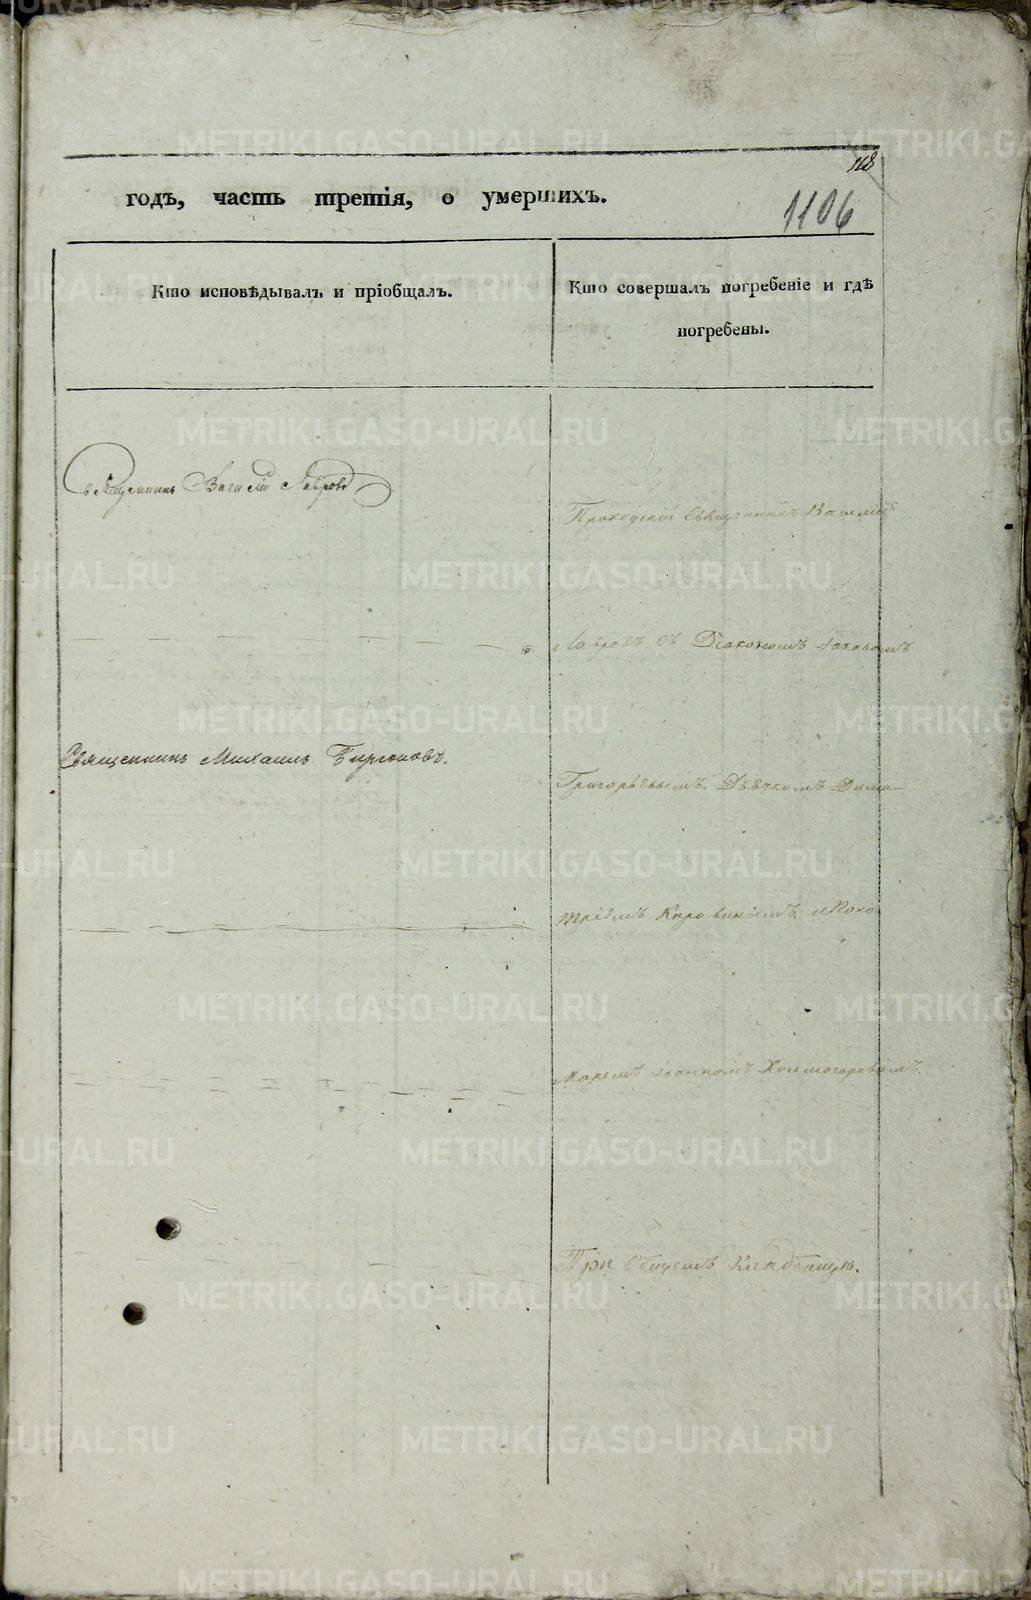 118
годъ, часть третія, о умершихъ.
1106
Кто исповѣдывалъ и пріобщалъ.
Кто совершалъ погребеніе и гдѣ
погребены.
Священникъ Василій Лавровъ
Приходскій Священникъ Василій
Лавровъ съ Діакономъ Іаковомъ
Священникъ Михаилъ Бирюковъ.
Григорьевымъ. Дьячкомъ Дими-
тріемъ Коровинымъ и Поно-
маремъ Іоанномъ Холмогоровымъ.
При Общемъ Кладбищѣ.
METRIKI.GASO-URAL.RU